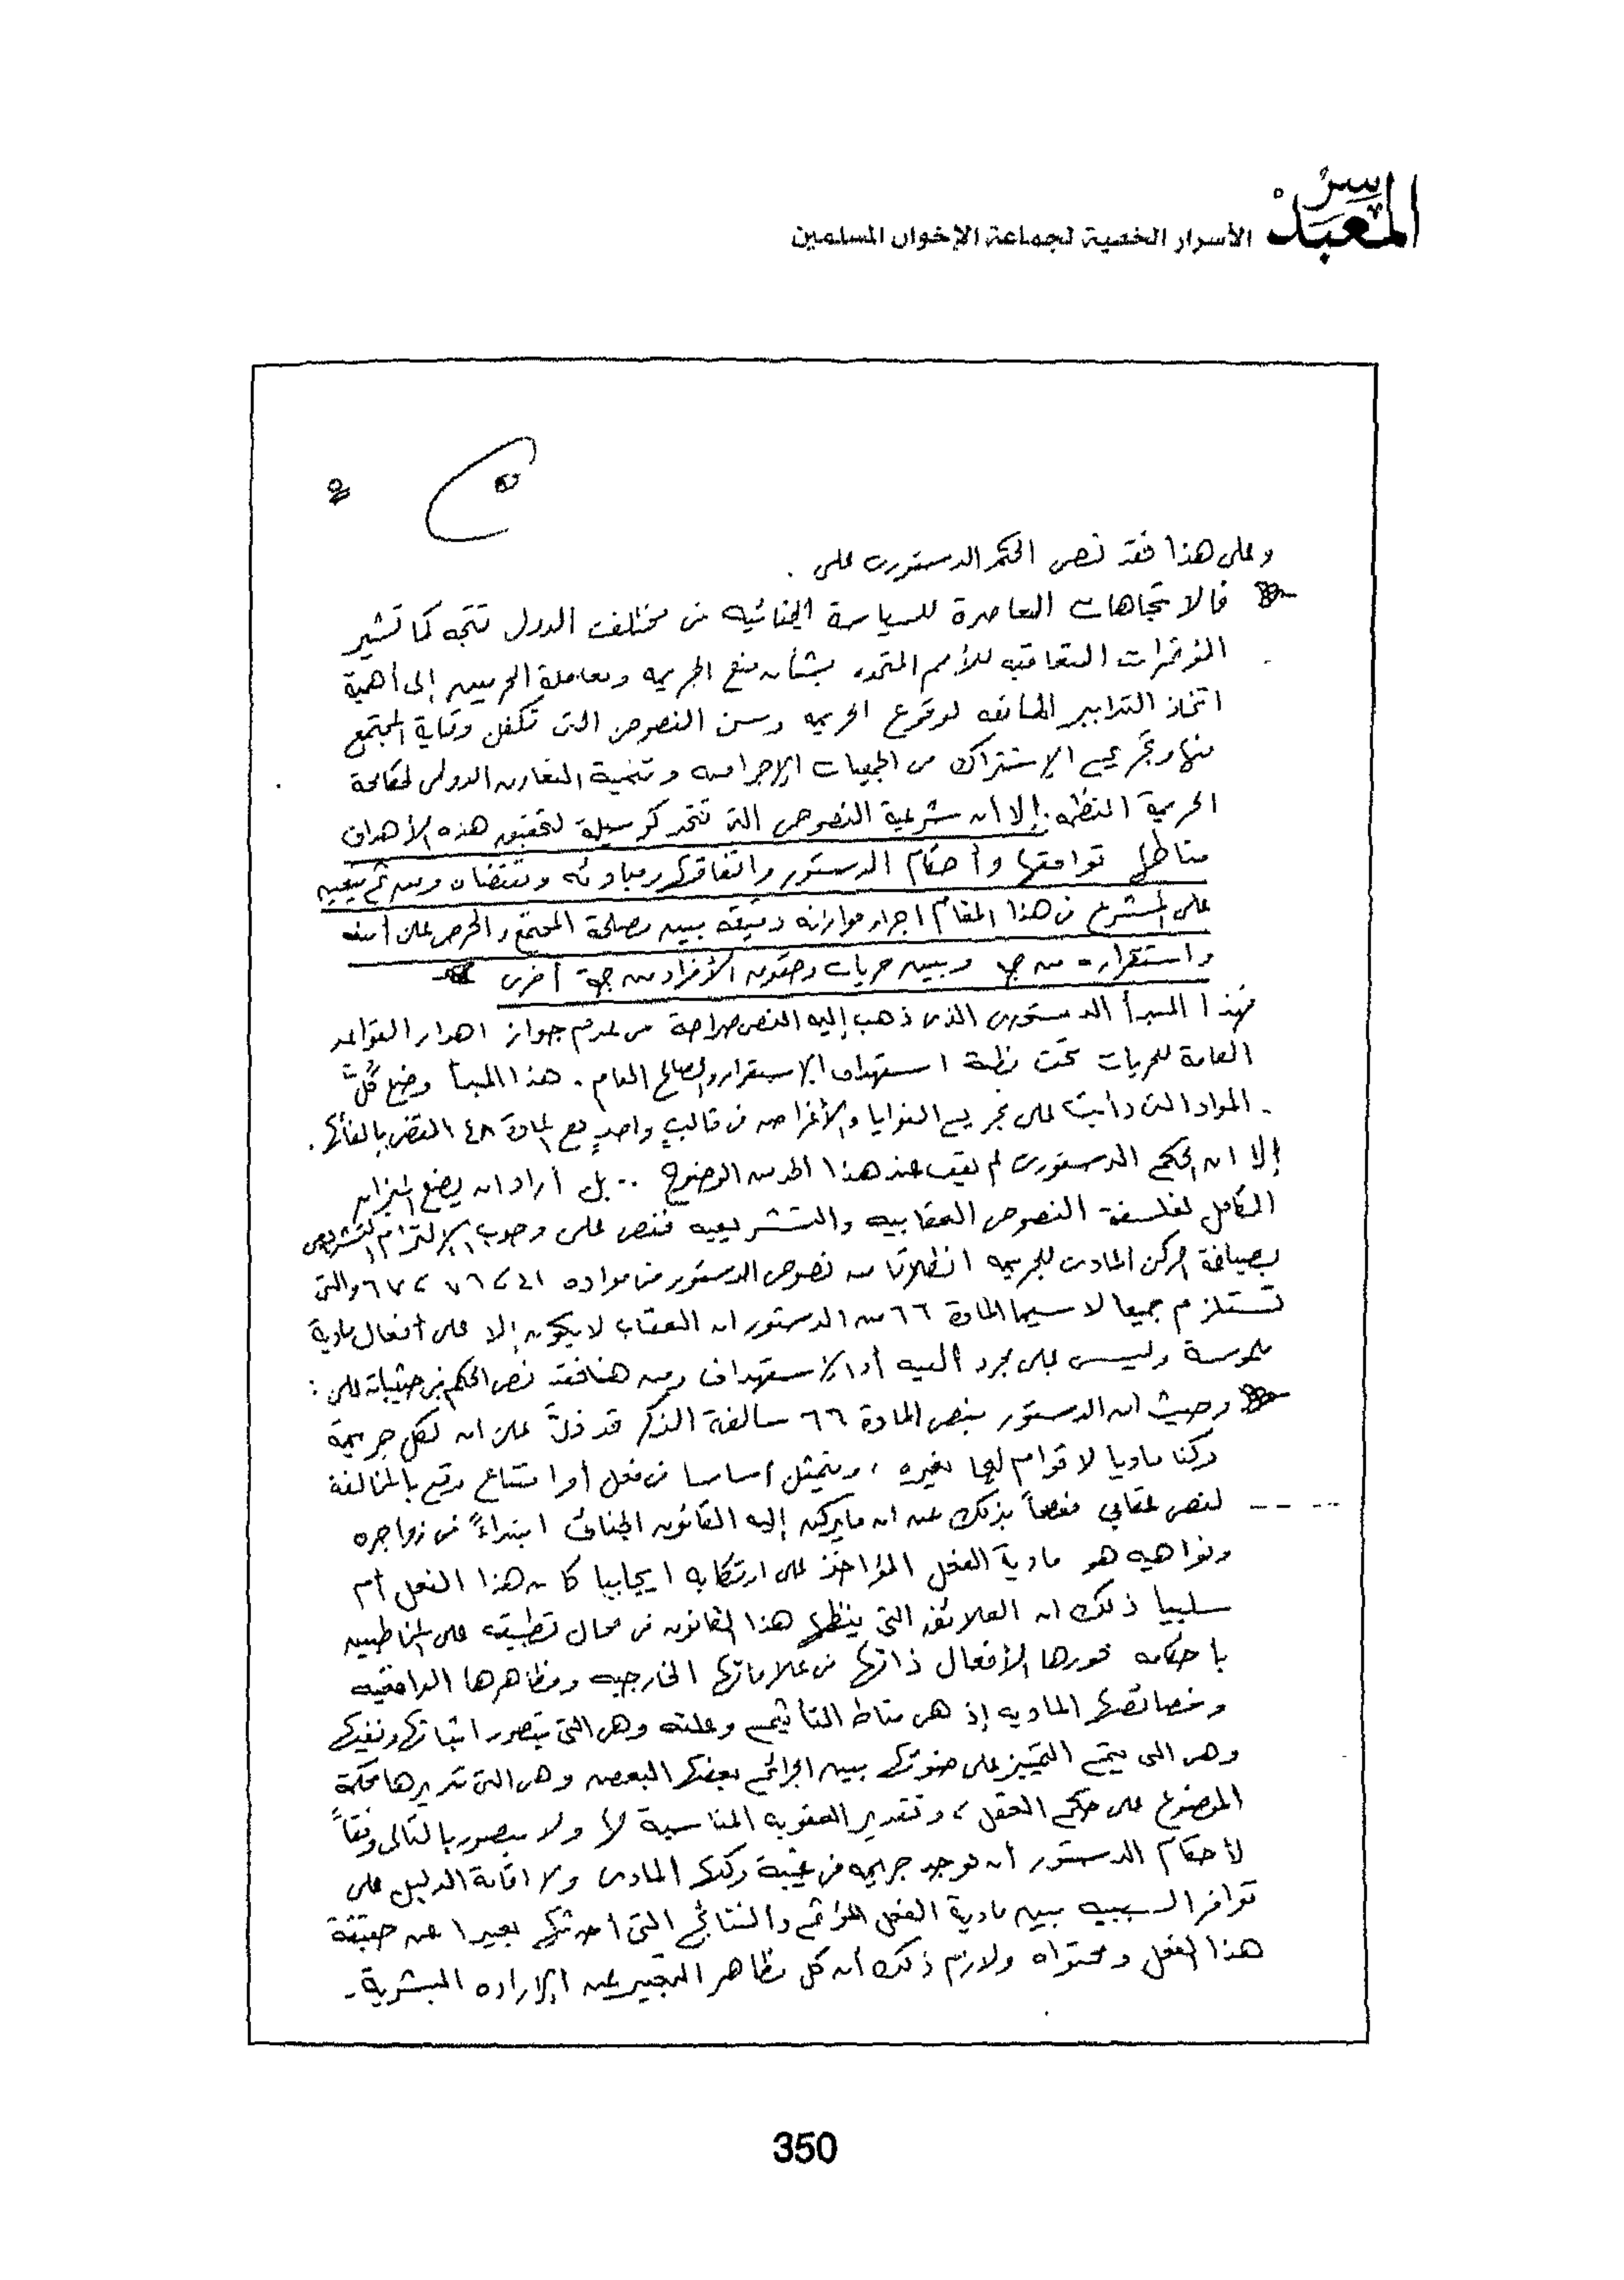 سر
المعبد
الأسرار الخفية لجماعة الإخوان المسلمين
وعلى هذا فقد نص الحكم الدستورى على .
فالاتجاهات المعاصرة للسياسة الجنائيه فى مختلف الدول تتجه كما تشير
المؤتمرات المتعاقبه للأمم المتحده بشأن منع الجريمه ومعاملة المجرمين إلى أهمية
اتخاذ التدابير المانعه لوقوع الجريمه وسن النصوص التى تكفل وقاية المجتمع
منها وتجريم الإشتراك فى الجمعيات الإجراميه وتنمية التعاون الدولى لمكافحة
الجريمة المنظمه . إلا أن شرعية النصوص التى تتخذ كوسيلة لتحقيق هذه الأهداف
مناطها توافقها وأحكام الدستور واتفاقها ومبادئه ومقتضاه ومن ثم يتعين
على المشرع فى هذا المقام اجراء موازنه دقيقه بين مصلحة المجتمع والحرص على أمنه
واستقراره من جهه وبين حريات وحقوق الأفراد من جهة أخرى
فهذا المبدأ الدستورى الذى ذهب إليه النص صراحة من عدم جواز اهدار القواعد
العامة للحريات تحت مظلة استهداف الإستقرار والصالح العام . هذا المبدأ وضع كل
المواد التى دأبت على تجريم النوايا والأغراض فى قالب واحد مع المادة ٤٨ المقضى بإلغائها .
إلا ان الحكم الدستورى لم يقف عند هذا الحد من الوضوح .. بل أراد ان يضع الميزان
الكامل لفلسفة النصوص العقابيه والتشريعيه فنص على وجوب الإلتزام التشريعى
بصياغة الركن المادى للجريمه انطلاقا من نصوص الدستور فى مواده ٤١ ، ٦٦ ، ٦٧ والتى
تستلزم جميعا لا سيما المادة ٦٦ من الدستور ان العقاب لا يكون إلا على أفعال مادية
ملموسة وليس على مجرد النيه أو الاستهداف ومن هنا فقد نص الحكم فى حيثياته على :
وحيث ان الدستور بنص المادة ٦٦ سالفة الذكر قد دلّ على ان لكل جريمة
ركنا ماديا لا قوام لها بغيره ، ويتمثل أساسا فى فعل أو امتناع وقع بالمخالفة
لنص عقابي مفصحاً بذلك عن ان ما يركن إليه القانون الجنائى ابتداءً فى زواجره
ونواهيه هو مادية الفعل المؤاخذ على ارتكابه ايجابيا كان هذا الفعل أم
سلبيا ذلك ان العلائق التى ينظمها هذا القانون فى مجال تطبيقه على المخاطبين
باحكامه محورها الأفعال ذاتها فى علاماتها الخارجيه ومظاهرها الواقعيه
وخصائصها الماديه إذ هى مناط التأثيم وعلته وهى التى يتصور اثباتها ونفيها
وهى التى يتم التمييز على ضوئها بين الجرائم بعضها البعض وهى التى تديرها محكمة
الموضوع على حكم العقل ، وتقدير العقوبه المناسبة لها ولا يتصور بالتالى وفقاً
لأحكام الدستور أن توجد جريمه فى غيبة ركنها المادى ولا اقامة الدليل على
توافر السببيه بين مادية الفعل المؤثم والنتائج التى أحدثها بعيدا عن حقيقة
هذا الفعل ومحتواه ولازم ذلك أن كل مظاهر التعبير عن الإراده البشرية -
350